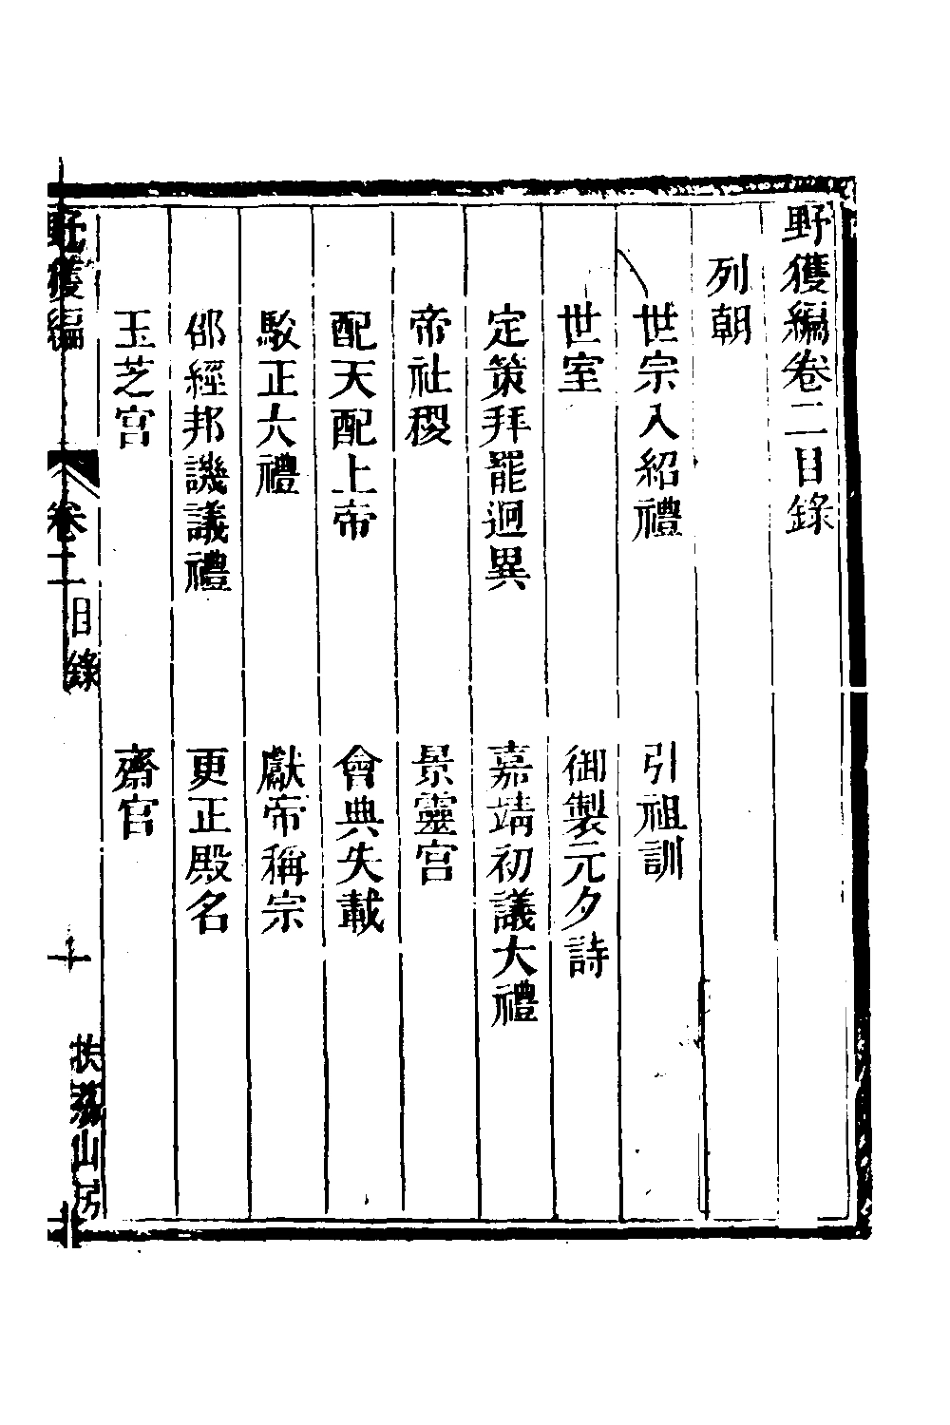 野獲編卷二目錄
列朝
世宗入紹禮 引祖訓
世室 御製元夕詩
定策拜罷迥異 嘉靖初議大禮
帝社稷 景靈宮
配天配上帝 會典失載
駁正大禮 獻帝稱宗
邵經邦譏議禮 更正殿名
玉芝宮 齋宮
野獲編 卷二 目錄 一 扶荔山房